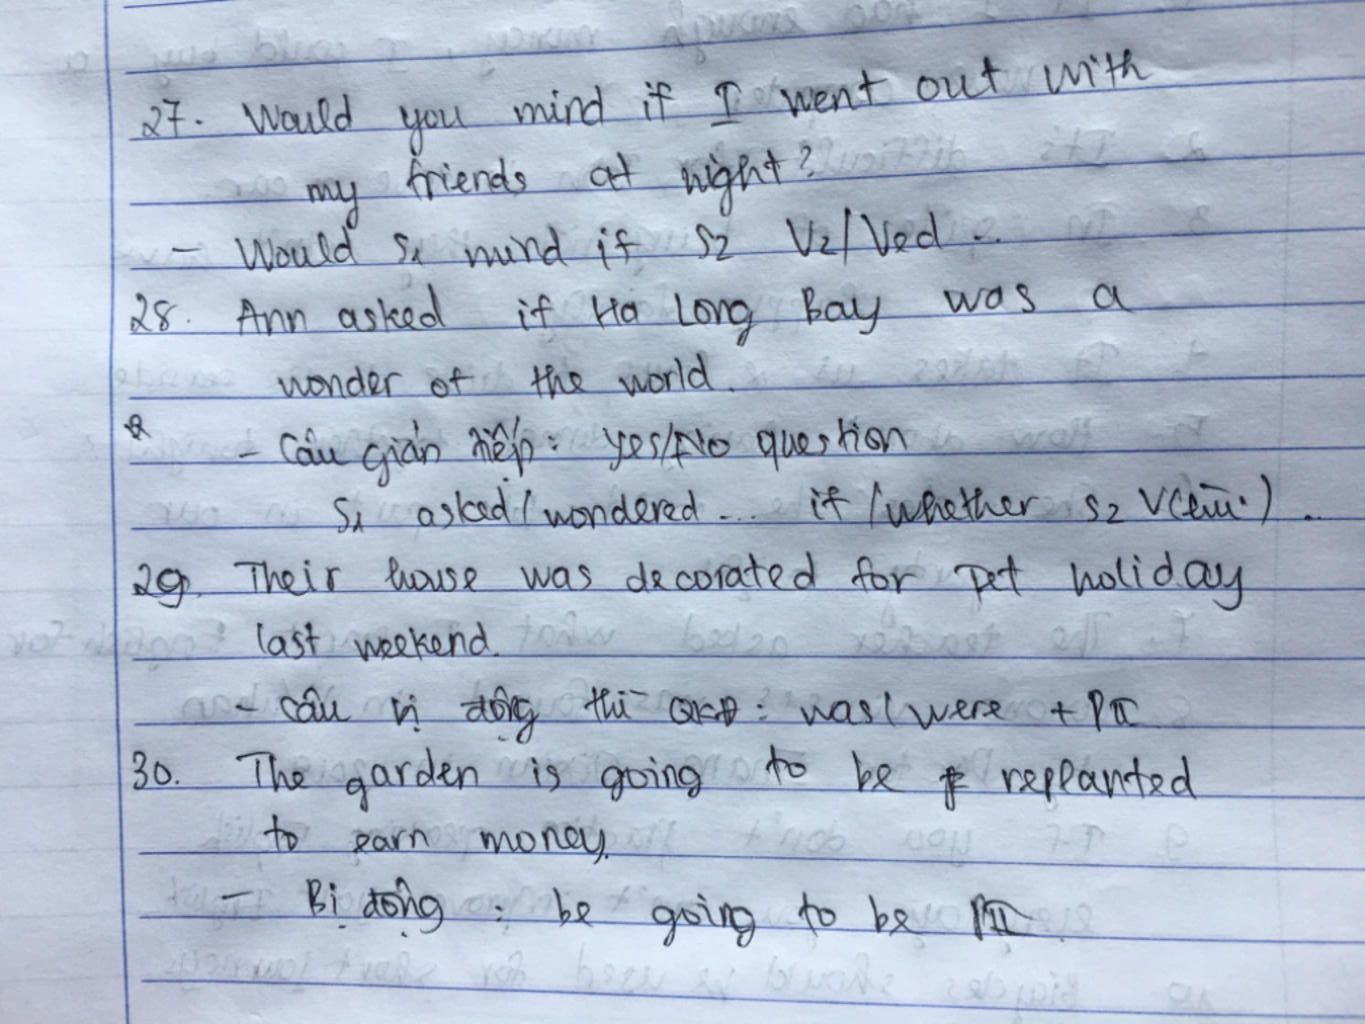 27. Would you mind if I went out with
my friends at night?
- Would S1 mind if S2 V2/Ved ..
28. Ann asked if Ha Long Bay was a
wonder of the world.
- Câu gián tiếp: Yes/No question
S1 asked/wondered ... if/whether S2 V(lùi) ..
29. Their house was decorated for Tet holiday
last weekend.
- Câu bị động thì QKĐ: was/were + PII
30. The garden is going to be replanted
to earn money.
- Bị động: be going to be PII